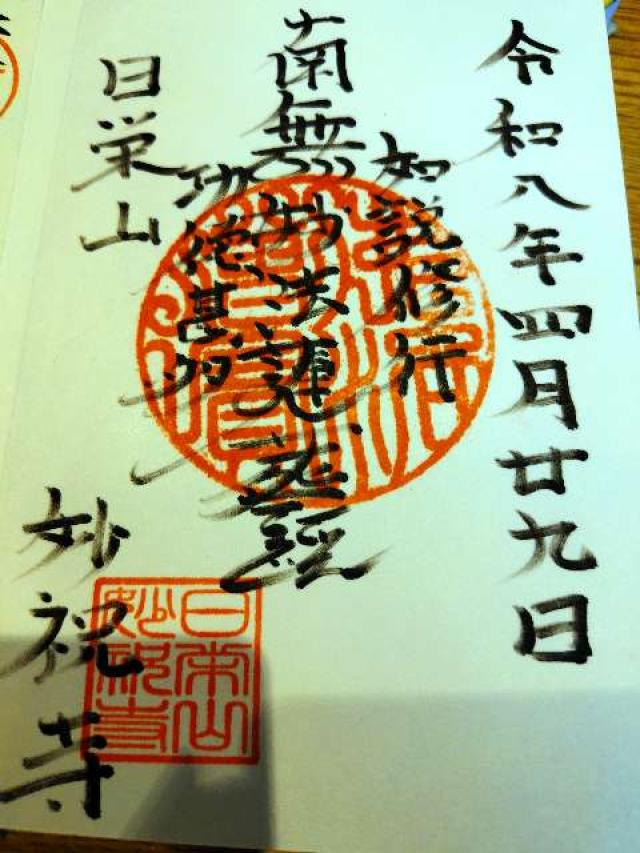 令和八年四月廿九日
如説修行
南無妙法蓮華経
功徳甚多
日栄山
妙祝寺
日栄山
妙祝寺